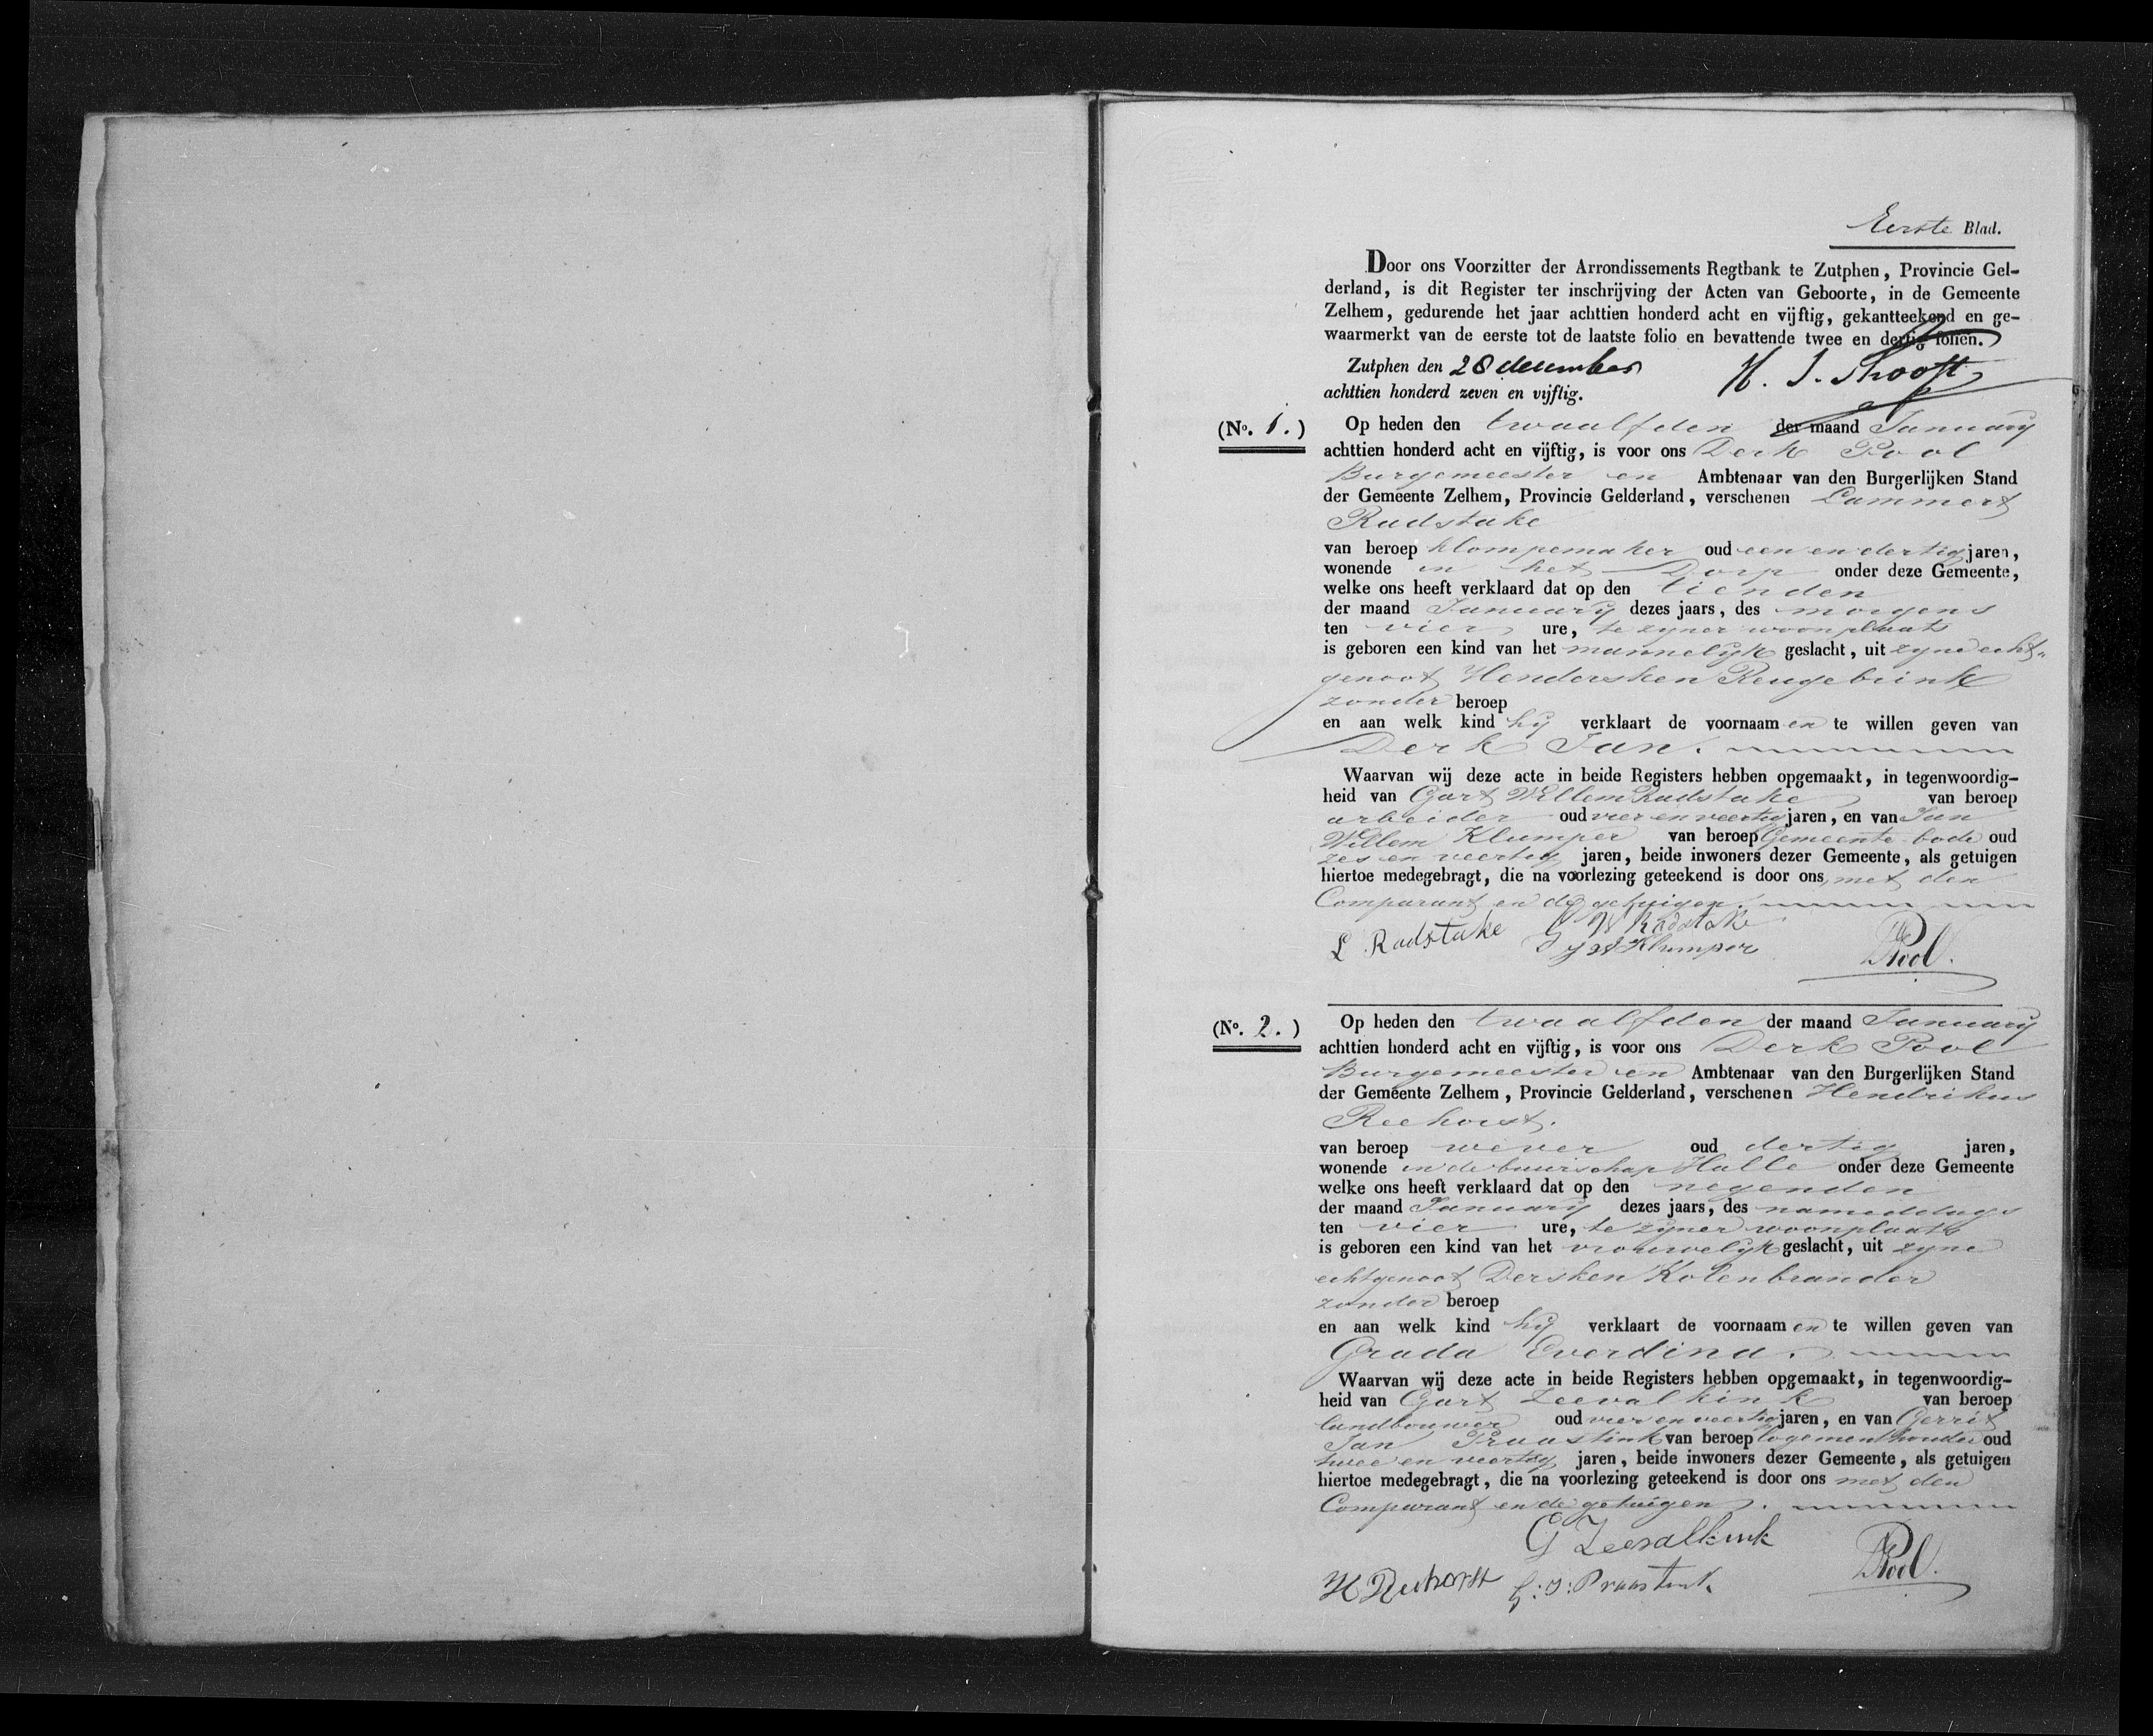 Eerste Blad.
Door ons Voorzitter der Arrondissements Regtbank te Zutphen, Provincie Gel-
derland, is dit Register ter inschrijving der Acten van Geboorte, in de Gemeente
Zelhem, gedurende het jaar achttien honderd acht en vijftig, gekantteekend en ge-
waarmerkt van de eerste tot de laatste folio en bevattende twee en dertig foliën.
Zutphen den 28 december
achttien honderd zeven en vijftig.
(No. 1.) Op heden den twaalfden der maand January
achttien honderd acht en vijftig, is voor ons Derk Pool
Burgemeester en Ambtenaar van den Burgerlijken Stand
der Gemeente Zelhem, Provincie Gelderland, verschenen Lammert
Radstake
van beroep klompemaker oud een en dertig jaren,
wonende in het Dorp onder deze Gemeente,
welke ons heeft verklaard dat op den tienden
der maand January dezes jaars, des morgens
ten vier ure, te zyner woonplaats
is geboren een kind van het mannelyk geslacht, uit zyne echt„
genoot Hendersken Reugebrink
zonder beroep
en aan welk kind hy verklaart de voornaam en te willen geven van
Derk Jan.
Waarvan wij deze acte in beide Registers hebben opgemaakt, in tegenwoordig-
heid van Gart Willem Radstake van beroep
arbeider oud vier en veertig jaren, en van Jan
Willem Klumper van beroep Gemeente bode oud
zes en veertig jaren, beide inwoners dezer Gemeente, als getuigen
hiertoe medegebragt, die na voorlezing geteekend is door ons, met den
Comparant en de getuigen.
L Radstake G W Radstake
J W Klumper
Pool.
(No. 2.) Op heden den twaalfden der maand January
achttien honderd acht en vijftig, is voor ons Derk Pool
Burgemeester en Ambtenaar van den Burgerlijken Stand
der Gemeente Zelhem, Provincie Gelderland, verschenen Hendrikus
Reehorst.
van beroep wever oud dertig jaren,
wonende in de buurschap Halle onder deze Gemeente
welke ons heeft verklaard dat op den negenden
der maand January dezes jaars, des namiddags
ten vier ure, te zyner woonplaats
is geboren een kind van het vrouwelyk geslacht, uit zyne
echtgenoot Dersken Kolenbrander
zonder beroep
en aan welk kind hy verklaart de voornaam en te willen geven van
Grada Everdina.
Waarvan wij deze acte in beide Registers hebben opgemaakt, in tegenwoordig-
heid van Gart Zeevalkink van beroep
landbouwer oud vier en veertig jaren, en van Gerrit
Jan Praastink van beroep logementhouder oud
twee en veertig jaren, beide inwoners dezer Gemeente, als getuigen
hiertoe medegebragt, die na voorlezing geteekend is door ons met den
Comparant en de getuigen.
G Zeevalkink
H Reehorst G: J: Praastink
Pool.